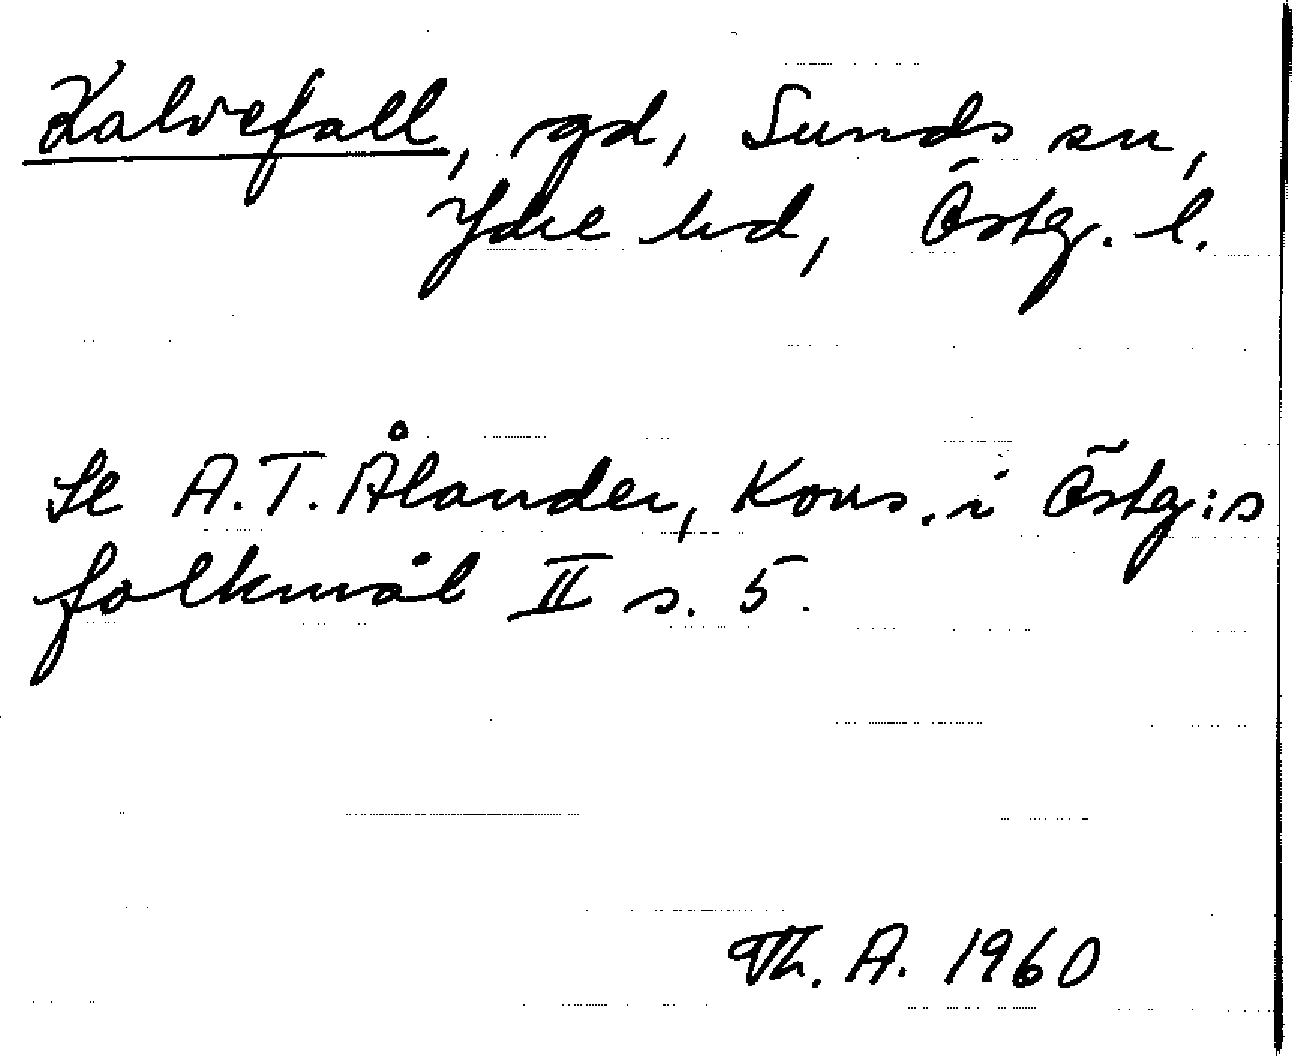 Kalvefall, rgd, Sunds sn,
Ydre hd, Östg. l.
Se A.T. Ålander, Kons. i Östg:s
folkmål II s. 5.
Th. A. 1960